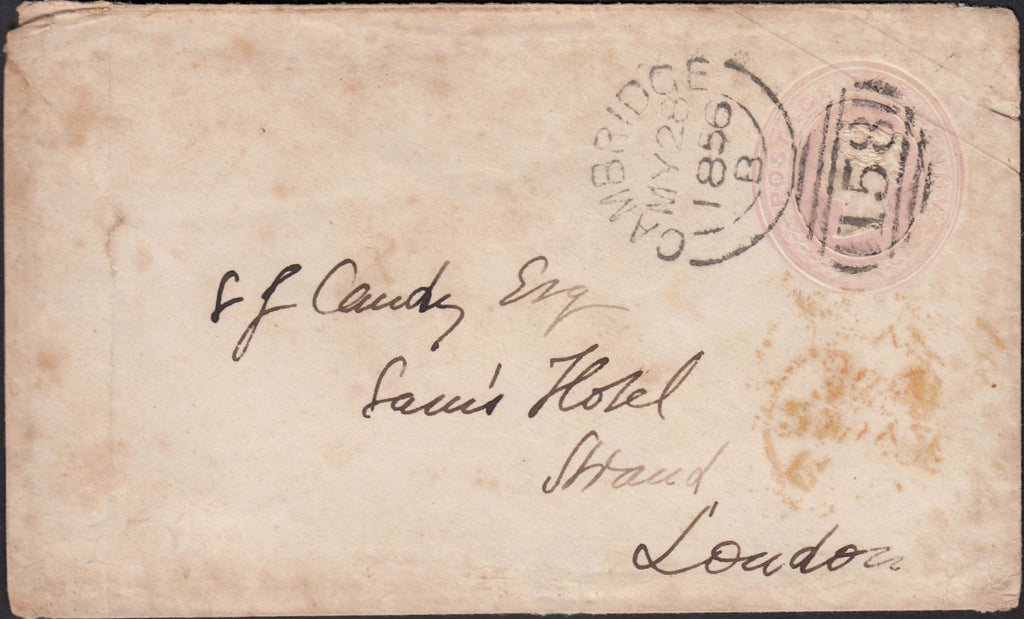 CAMBRIDGE
MY 28
1856
B
158
POSTAGE ONE PENNY
S J Candy Esq
Sam's Hotel
Strand
London